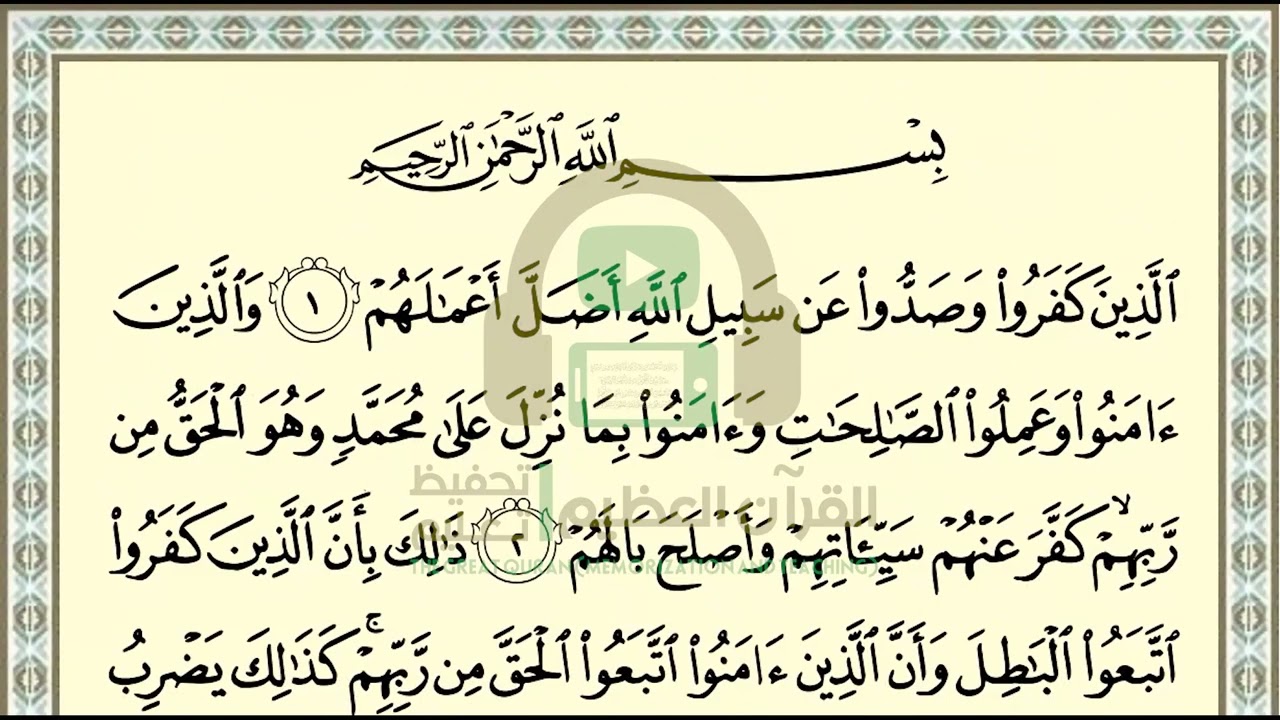 بِسْمِ ٱللَّهِ ٱلرَّحْمَٰنِ ٱلرَّحِيمِ
ٱلَّذِينَ كَفَرُوا۟ وَصَدُّوا۟ عَن سَبِيلِ ٱللَّهِ أَضَلَّ أَعْمَٰلَهُمْ ١ وَٱلَّذِينَ
ءَامَنُوا۟ وَعَمِلُوا۟ ٱلصَّٰلِحَٰتِ وَءَامَنُوا۟ بِمَا نُزِّلَ عَلَىٰ مُحَمَّدٍ وَهُوَ ٱلْحَقُّ مِن
رَّبِّهِمْ ۙ كَفَّرَ عَنْهُمْ سَيِّـَٔاتِهِمْ وَأَصْلَحَ بَالَهُمْ ٢ ذَٰلِكَ بِأَنَّ ٱلَّذِينَ كَفَرُوا۟
ٱتَّبَعُوا۟ ٱلْبَٰطِلَ وَأَنَّ ٱلَّذِينَ ءَامَنُوا۟ ٱتَّبَعُوا۟ ٱلْحَقَّ مِن رَّبِّهِمْ ۚ كَذَٰلِكَ يَضْرِبُ
القرآن العظيم
تحفيظ
تعليم
THE GREAT QURAN (MEMORIZATION AND TEACHING)